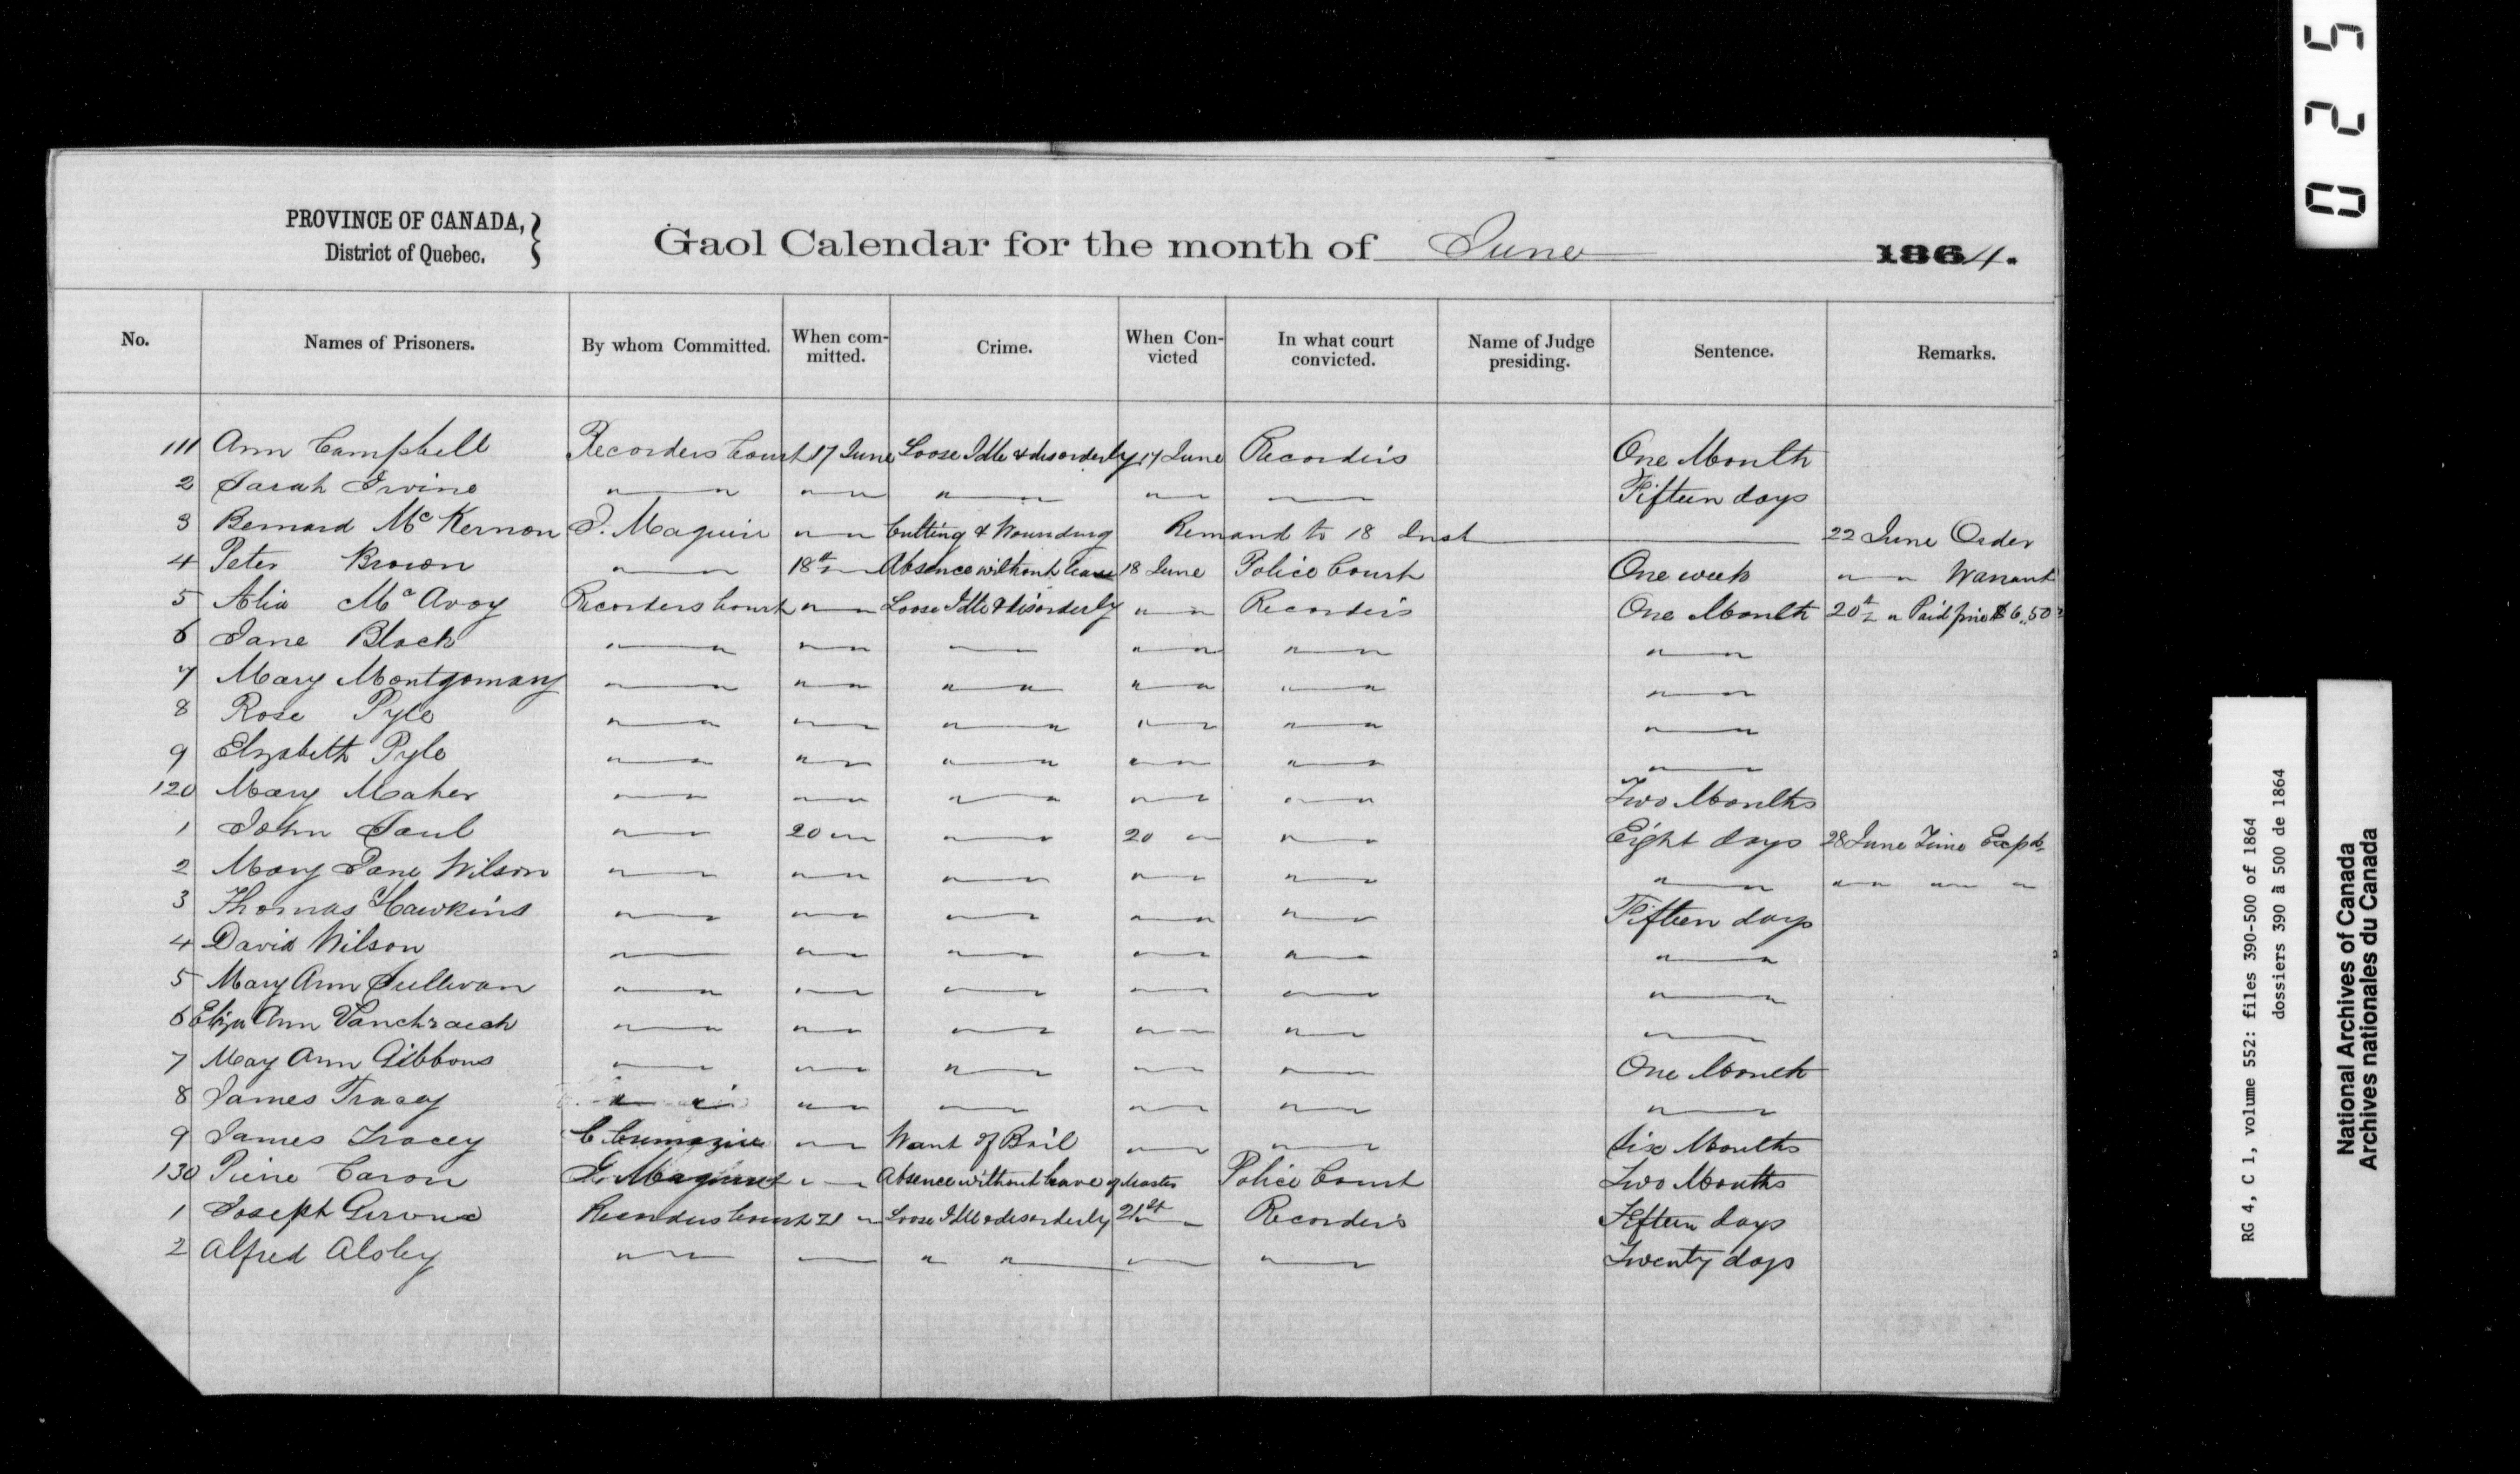 PROVINCE OF CANADA,
District of Quebec.
Gaol Calendar for the month of June 1864.
No. Names of Prisoners. By whom Committed. When committed. Crime. When Convicted In what court convicted. Name of Judge presiding. Sentence. Remarks.
111 Ann Campbell Recorders Court 17 June Loose Idle & disorderly 17 June Recorder's One Month
2 Sarah Irvine " " " " " " " Fifteen days
3 Bernard Mc Kernon J. Maguire " " Cutting & Wounding Remand to 18 Inst 22 June Order
4 Peter Brown " " 18th " Absence without leave 18 June Police Court One week " " Warrant
5 Mc Avoy Recorders Court " " Loose Idle & disorderly " " Recorder's One Month 20th " Paid fine $6.50
6 Jane Black " " " " " " " " " "
7 Mary Montgomary " " " " " " " " " " " "
8 Rose Pyle " " " " " " " " " " " "
9 Elzabeth Pyle " " " " " " " " " " " "
120 Mary Maher " " " " " " " " " " Two Months
1 John Saul " " 20 " " " 20 " " " Eight days 28 June Time Expd.
2 Mary Jane Wilson " " " " " " " " " " " " " " " "
3 Thomas Hawkins " " " " " " " " " " Fifteen days
4 David Wilson " " " " " " " " " " " "
5 Mary Ann Sullivan " " " " " " " " " " " "
6 Eliza Ann " " " " " " " " " " " "
7 May Ann Gibbons " " " " " " " " " " One Month
8 James Tracey " " " " " " " " " " " "
9 James Tracey C. Want of Bail " " " " Six Months
130 Pierre Caron J. Maguire " " Absence without leave of Master Police Court Two Months
1 Joseph Giroux Recorders Court 21 " Loose Idle & disorderly 21st " Recorder's Fifteen days
2 Alfred " " " " " " " " Twenty days
025
RG 4, C 1, volume 552: files 390-500 of 1864
dossiers 390 à 500 de 1864
National Archives of Canada
Archives nationales du Canada